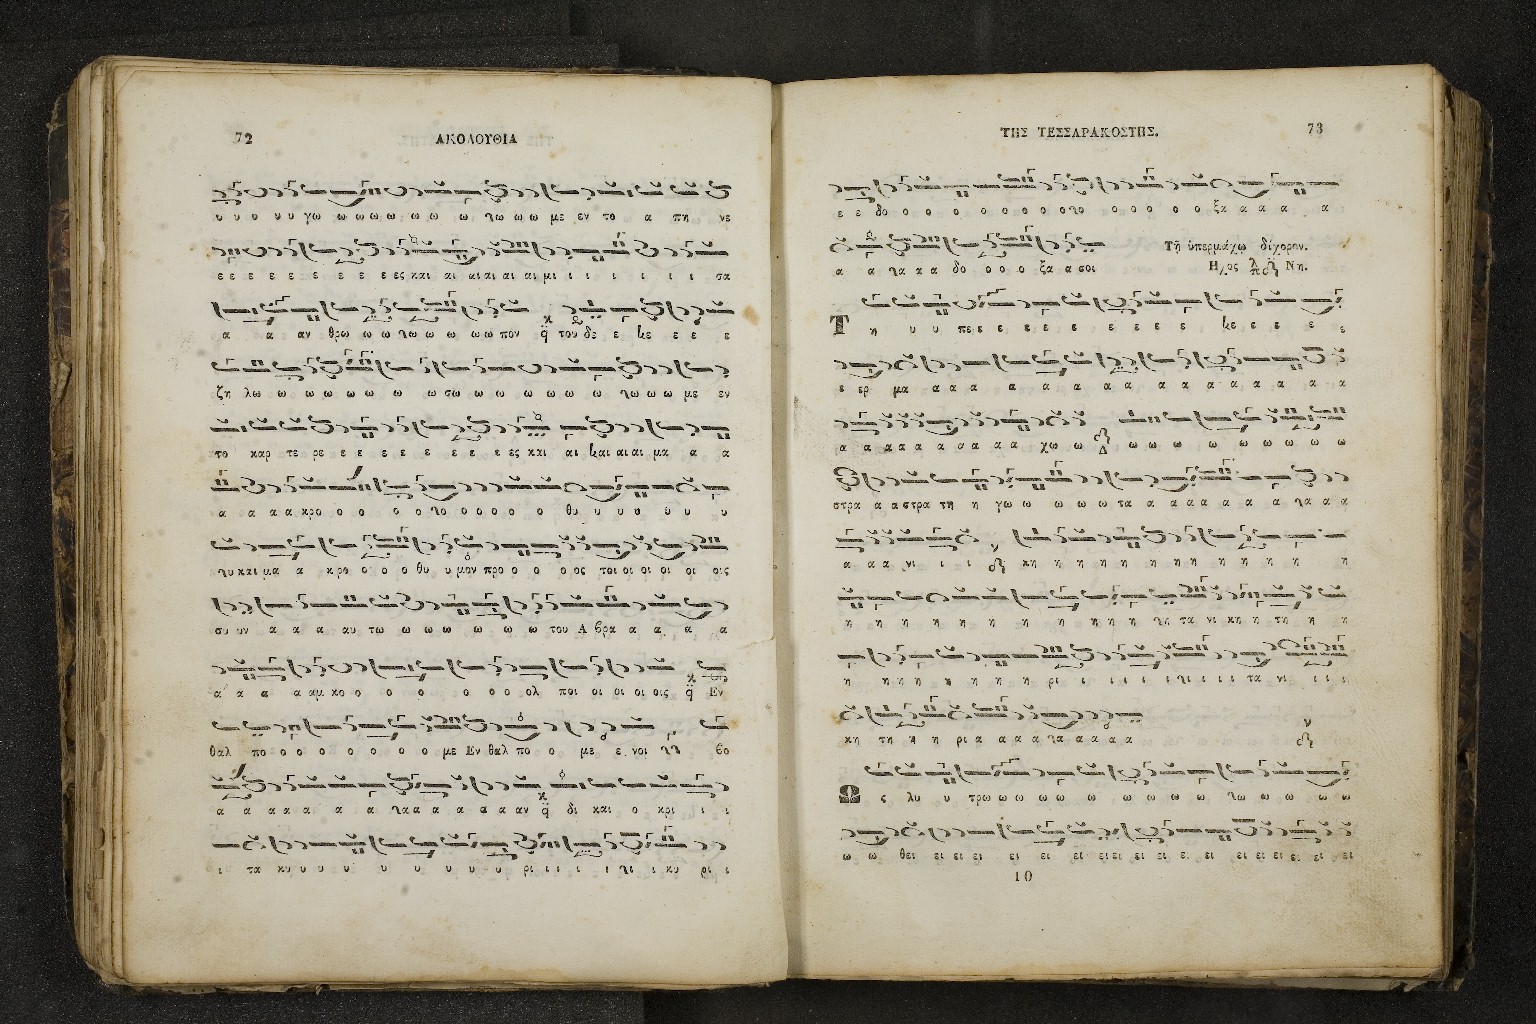 72 ΑΚΟΛΟΥΘΙΑ
υ υ ο υ υ γω ω ω ω ω ω ω ω γω ω ω με εν το α πη νε
ε ε ε ε ε ε ε ε ε ες και αι αι αι αι αι μι ι ι ι ι ι ι σα
α α αν θρω ω ω γω ω ω ω ω πον του δε ε κε ε ε ε
ζη λω ω ω ω ω ω ω σω ω ω ω ω ω ω γω ω ω με εν
το καρ τε ρε ε ε ε ε ε ε ε ε ες και αι και αι αι μα α α
α α α α κρο ο ο ο ο γο ο ο ο ο ο θυ υ υ υ υ υ υ
γυ και μα α κρο ο ο ο θυ υ μον προ ο ο ο ος τοι οι οι οι οι οις
συ υν α α α αυ τω ω ω ω ω ω ω του Α βρα α α α α
α α α α αμ κο ο ο ο ο ο ο ολ ποι οι οι οι οι οις Εν
θαλ πο ο ο ο ο ο ο ο με Εν θαλ πο ο με ε νοι βο
α α α α α α α γα α α α α α αν δι και ο κρι ι ι
ι τα κυ υ υ υ υ υ υ υ υ ρι ι ι ι ι γι ι κυ ρι ι
ΤΗΣ ΤΕΣΣΑΡΑΚΟΣΤΗΣ. 73
ε ε δο ο ο ο ο ο ο ο ο γο ο ο ο ο ο ξα α α α α
α α γα α α δο ο ο ο ξα α σοι Τῇ ὑπερμάχῳ δίχορον.
Ηχος Νη.
Τ η υ υ πε ε ε ε ε ε ε ε ε ε ε κε ε ε ε ε
ε ερ μα α α α α α α α α α α α α α α α α α
α α α α α α α α α α χω ω Δ ω ω ω ω ω ω ω ω ω
στρα α α στρα τη η γω ω ω ω ω τα α α α α α α α γα α α
α α α νι ι ι κη η η η η η η η η η η η η η
η η η η η η η η η η η γη τα νι κη η τη η η
η η η η η η η η ρι ι ι ι ι ι γι ι ι ι τα νι ι ι ι
κη τη η η ρι α α α α γα α α α α
Ω ς λυ υ τρω ω ω ω ω ω ω ω ω ω γω ω ω ω ω
ω ω θει ει ει ει ει ει ει ει ει ει ει ει ει ει ει ει ει ει ει
10